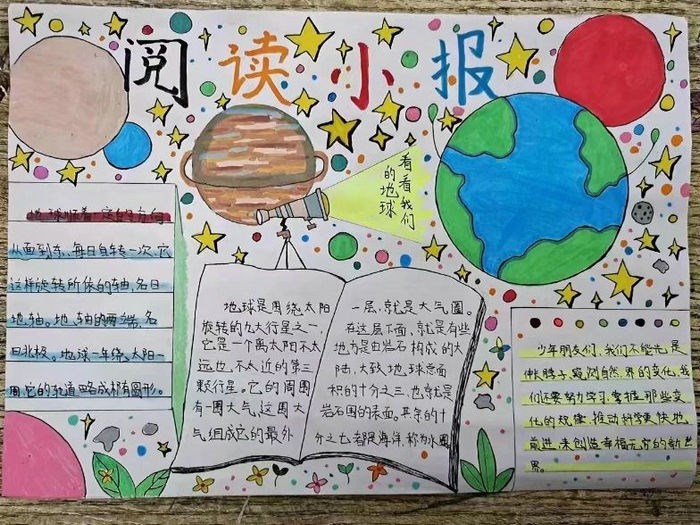 阅读小报
看看我们
的地球
地球顺着一定的方向
从西到东、每日自转一次,它
这样旋转所依的轴,名曰
地轴。地轴的两端,名
曰北极。地球一年绕太阳一
周,它的轨道略成椭有圆形。
地球是围绕太阳
旋转的九大行星之一,
它是一个离太阳不太
远也不太近的第三
颗行星。它的周围
有一圈大气,这圈大
气组成它的最外
一层,就是大气圈。
在这层下面,就是有些
地方是由岩石构成的大
陆,大致地球总面
积的十分之三,也就是
岩石圈的表面。其余的十
分之七都是海洋,称为水圈
少年朋友们,我们不能光是
伸长脖子窥测自然界的变化,我
们还要努力学习,掌握那些变
化的规律,推动科学更快地
前进,来创造幸福无穷的新世
界。